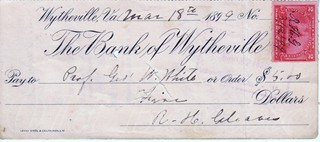 Wytheville, Va. Mar 18th 1899 No.
The Bank of Wytheville
Pay to Prof. Geo W. White or Order $5.00
Five Dollars
R. H. Cleaves